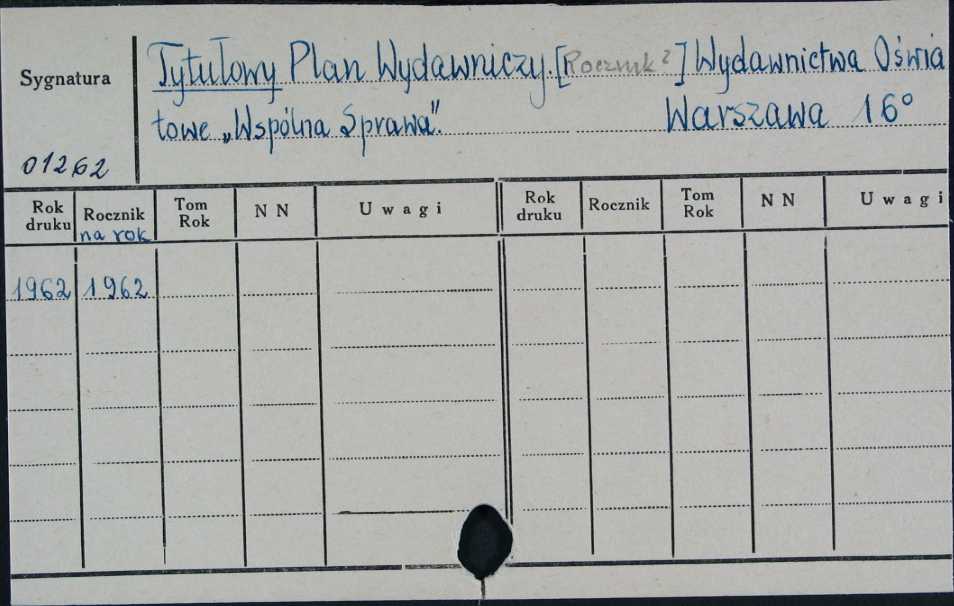 Sygnatura
Tytułowy Plan Wydawniczy. [Rocznik?] Wydawnictwa Oświa
towe „Wspólna Sprawa". Warszawa 16°
01262
Rok druku Rocznik na rok Tom Rok NN Uwagi Rok druku Rocznik Tom Rok NN Uwagi
1962 1962